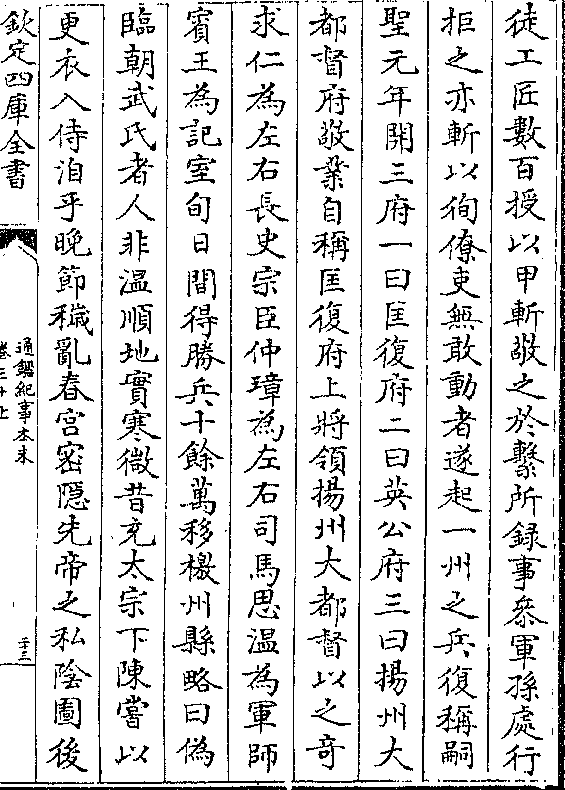 徒工匠數百授以甲斬敬之於繫所録事叅軍孫處行
拒之亦斬以徇僚吏無敢動者遂起一州之兵復稱嗣
聖元年開三府一曰匡復府二曰英公府三曰揚州大
都督府敬業自稱匡復府上將領揚州大都督以之竒
求仁為左右長史宗臣仲璋為左右司馬思温為軍師
賓王為記室旬日間得勝兵十餘萬移檄州縣略曰偽
臨朝武氏者人非温順地實寒微昔充太宗下陳嘗以
更衣入侍洎乎晚節穢亂春宫密隠先帝之私陰圖後
欽定四庫全書
通鑑紀事本末
卷三十上
三十三